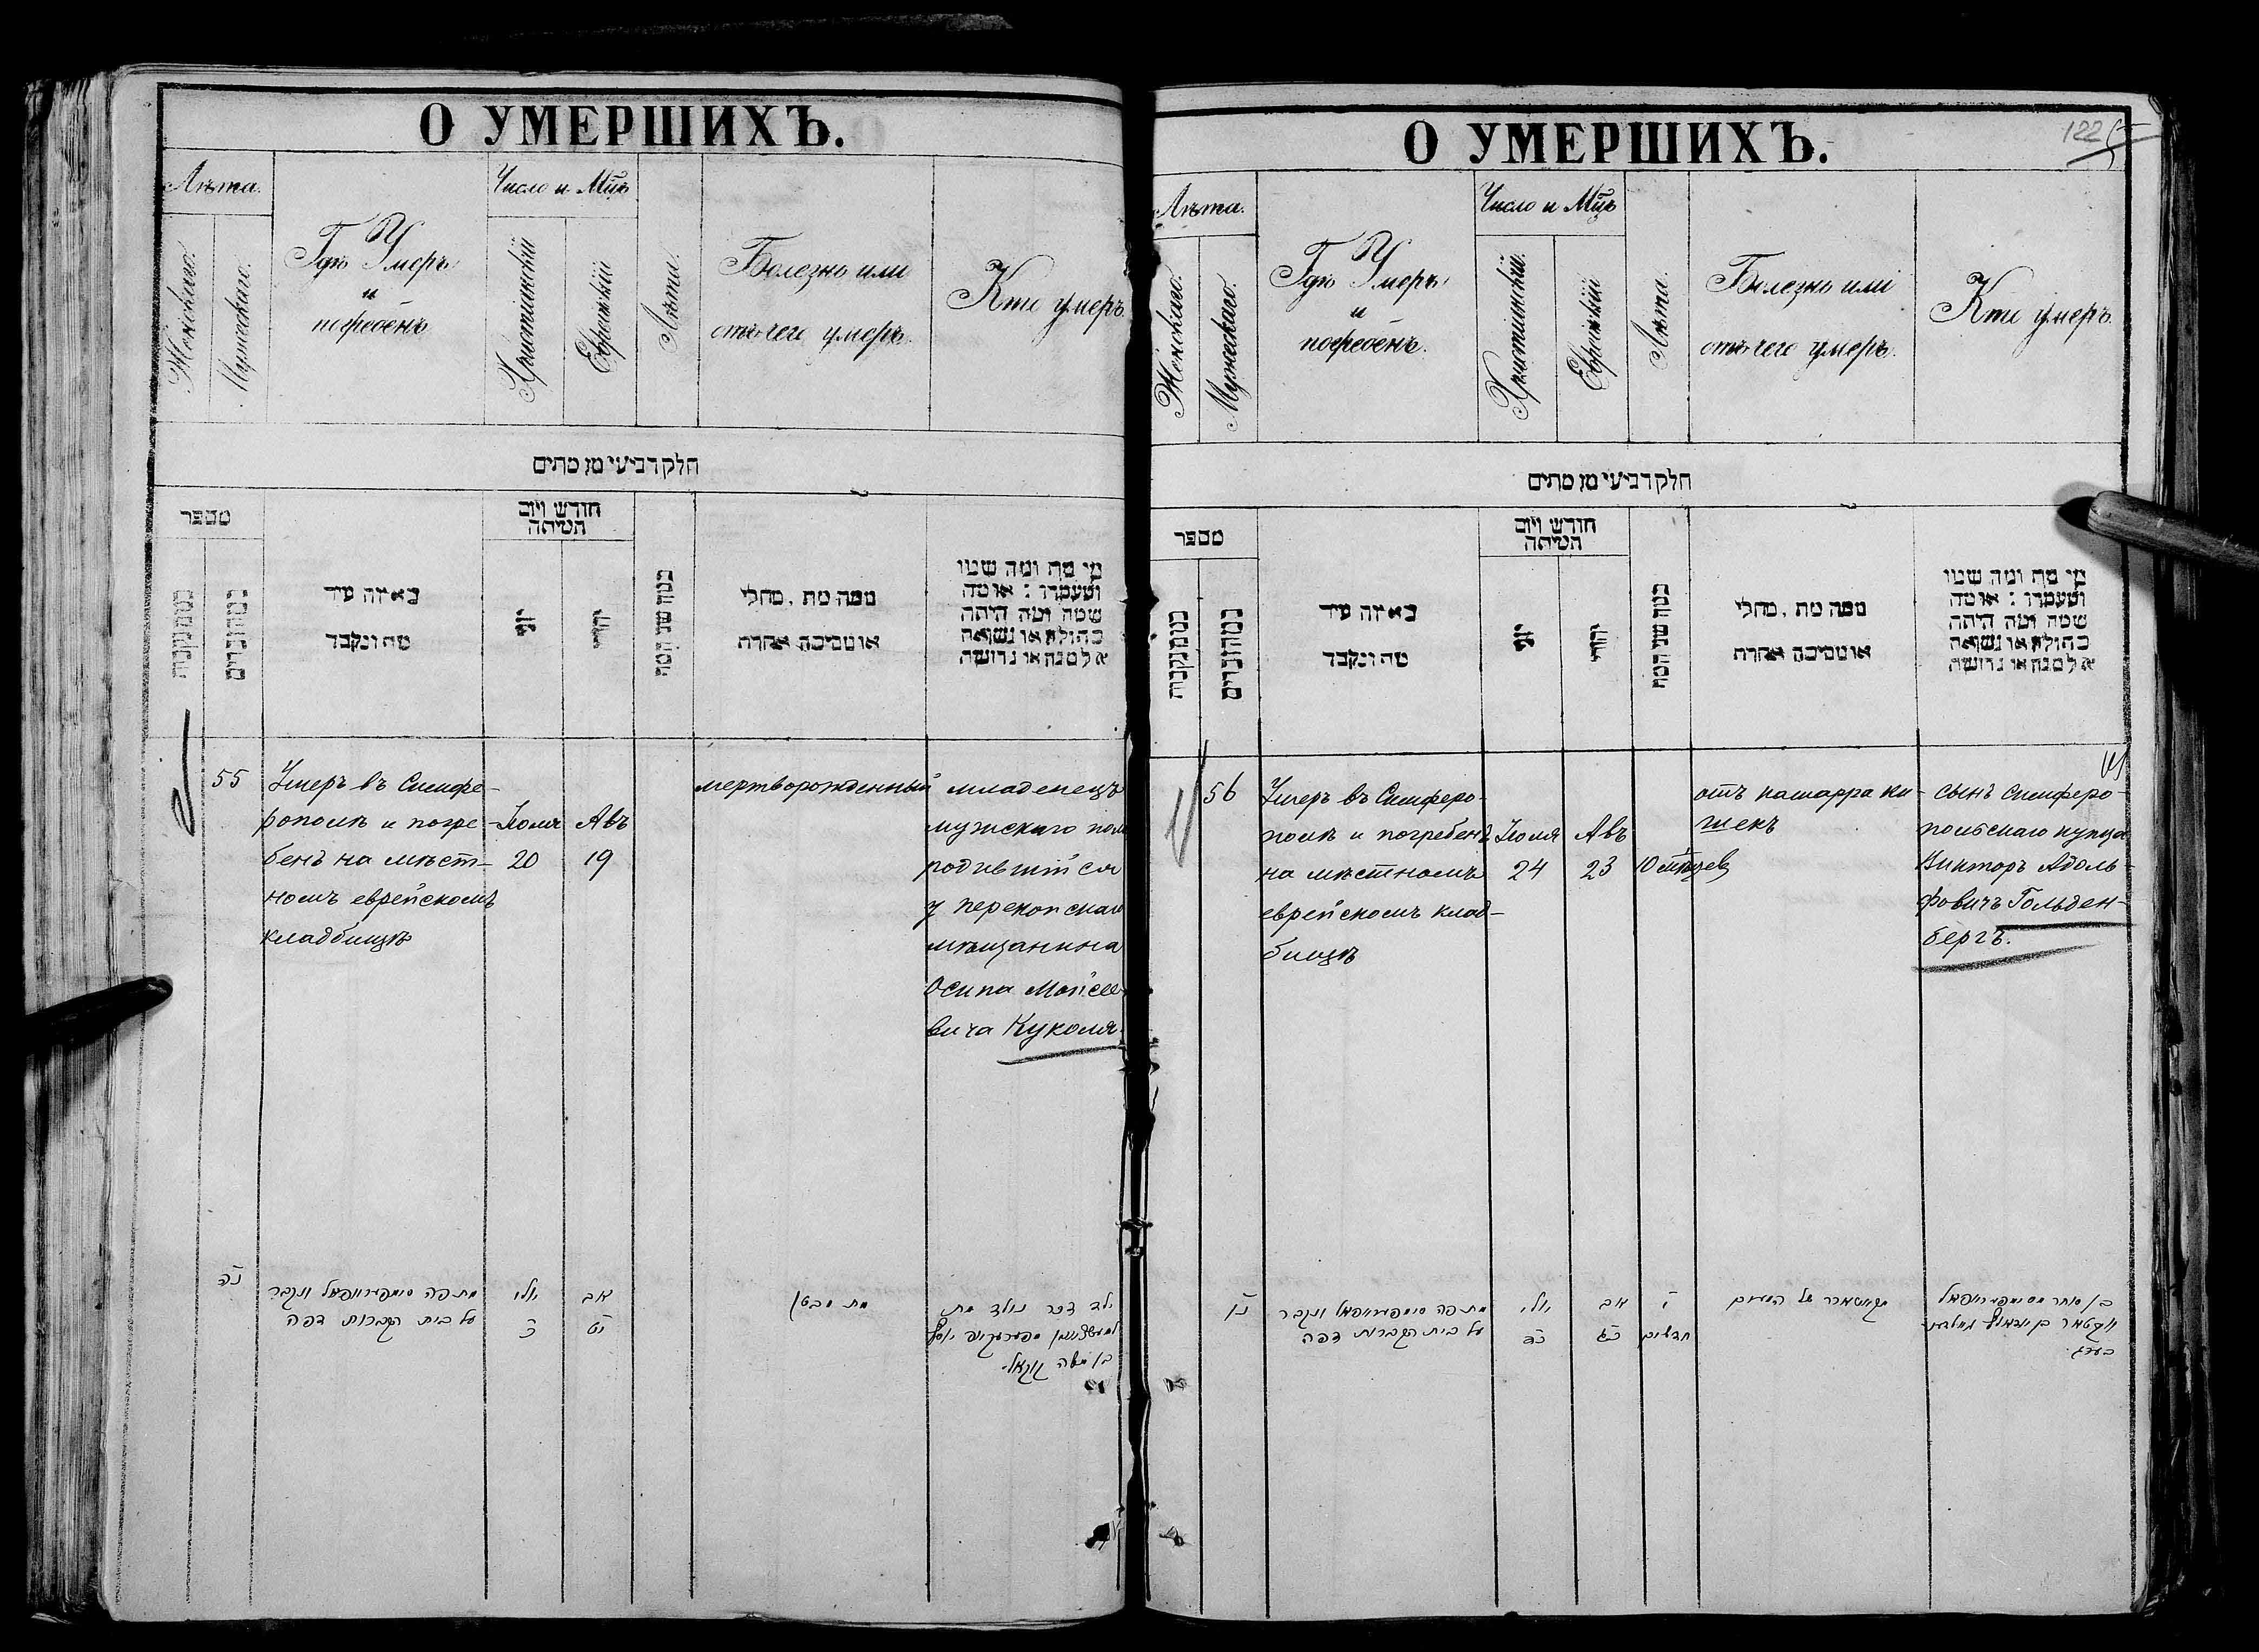 О УМЕРШИХЪ.
Лѣта.
Женскаго.
Мужескаго.
Гдѣ Умеръ
и
погребенъ
Число и Мц̃ъ
Христіанскій
Еврейскій
Лѣта.
Болезнь или
отъ чего умеръ.
Кто умеръ
חלק רביעי מן מתים
מספר
מהנקבות
מהזכרים
באיזה עיר
מת ונקבר
חודש ויום
המיתה
יוני
יהודי
כמה שני המת
ממה מת, מחלי
או מסיבה אחרת
מי מת ומה שמו
ומעמדו: או מה
שמה ומה היתה
בתולה או נשואה
אלמנה או גרושה
55
Умеръ въ Симфе-
рополѣ и погре-
бенъ на мѣст-
номъ еврейскомъ
кладбищѣ
Іюля
20
Авъ
19
мертворожденный
младенецъ
мужскаго пола
родившійся
у перекопскаго
мѣщанина
Осипа Мойсее-
вича Куколя.
נה
מת פה סימפעראפאל ונקבר
על בית הקברות דפה
יולי
כ
אב
יט
מת מבטן
ילד זכר נולד מת
יוסף
בן משה קוקאל.
О УМЕРШИХЪ.
122
Лѣта.
Женскаго.
Мужескаго.
Гдѣ Умеръ
и
погребенъ.
Число и Мц̃ъ
Христіанскій.
Еврейскій
Лѣта.
Болезнь или
отъ чего умеръ.
Кто умеръ.
חלק רביעי מן מתים
מספר
מהנקבות
מהזכרים
באיזה עיר
מת ונקבר
חודש ויום
המיתה
יוני
יהודי
כמה שני המת
ממה מת, מחלי
או מסיבה אחרת
מי מת ומה שמו
ומעמדו: או מה
שמה ומה היתה
בתולה או נשואה
אלמנה או גרושה
56
Умеръ въ Симферо-
полѣ и погребенъ
на мѣстномъ
еврейскомъ клад-
бищѣ
Іюля
24
Авъ
23
10 мѣсяцев
отъ катарра ки-
шекъ
сынъ симферо-
польскаго купца
Викторъ Адоль-
фовичъ Гольден-
бергъ.
נו
מת פה סימפעראפאל ונקבר
על בית הקברות דפה
יולי
כד
אב
כג
י
חדשים
של המעים
בן סוחר מסימפעראפאל
וויקטאר בן אדאלף גאלדענ
בערג.